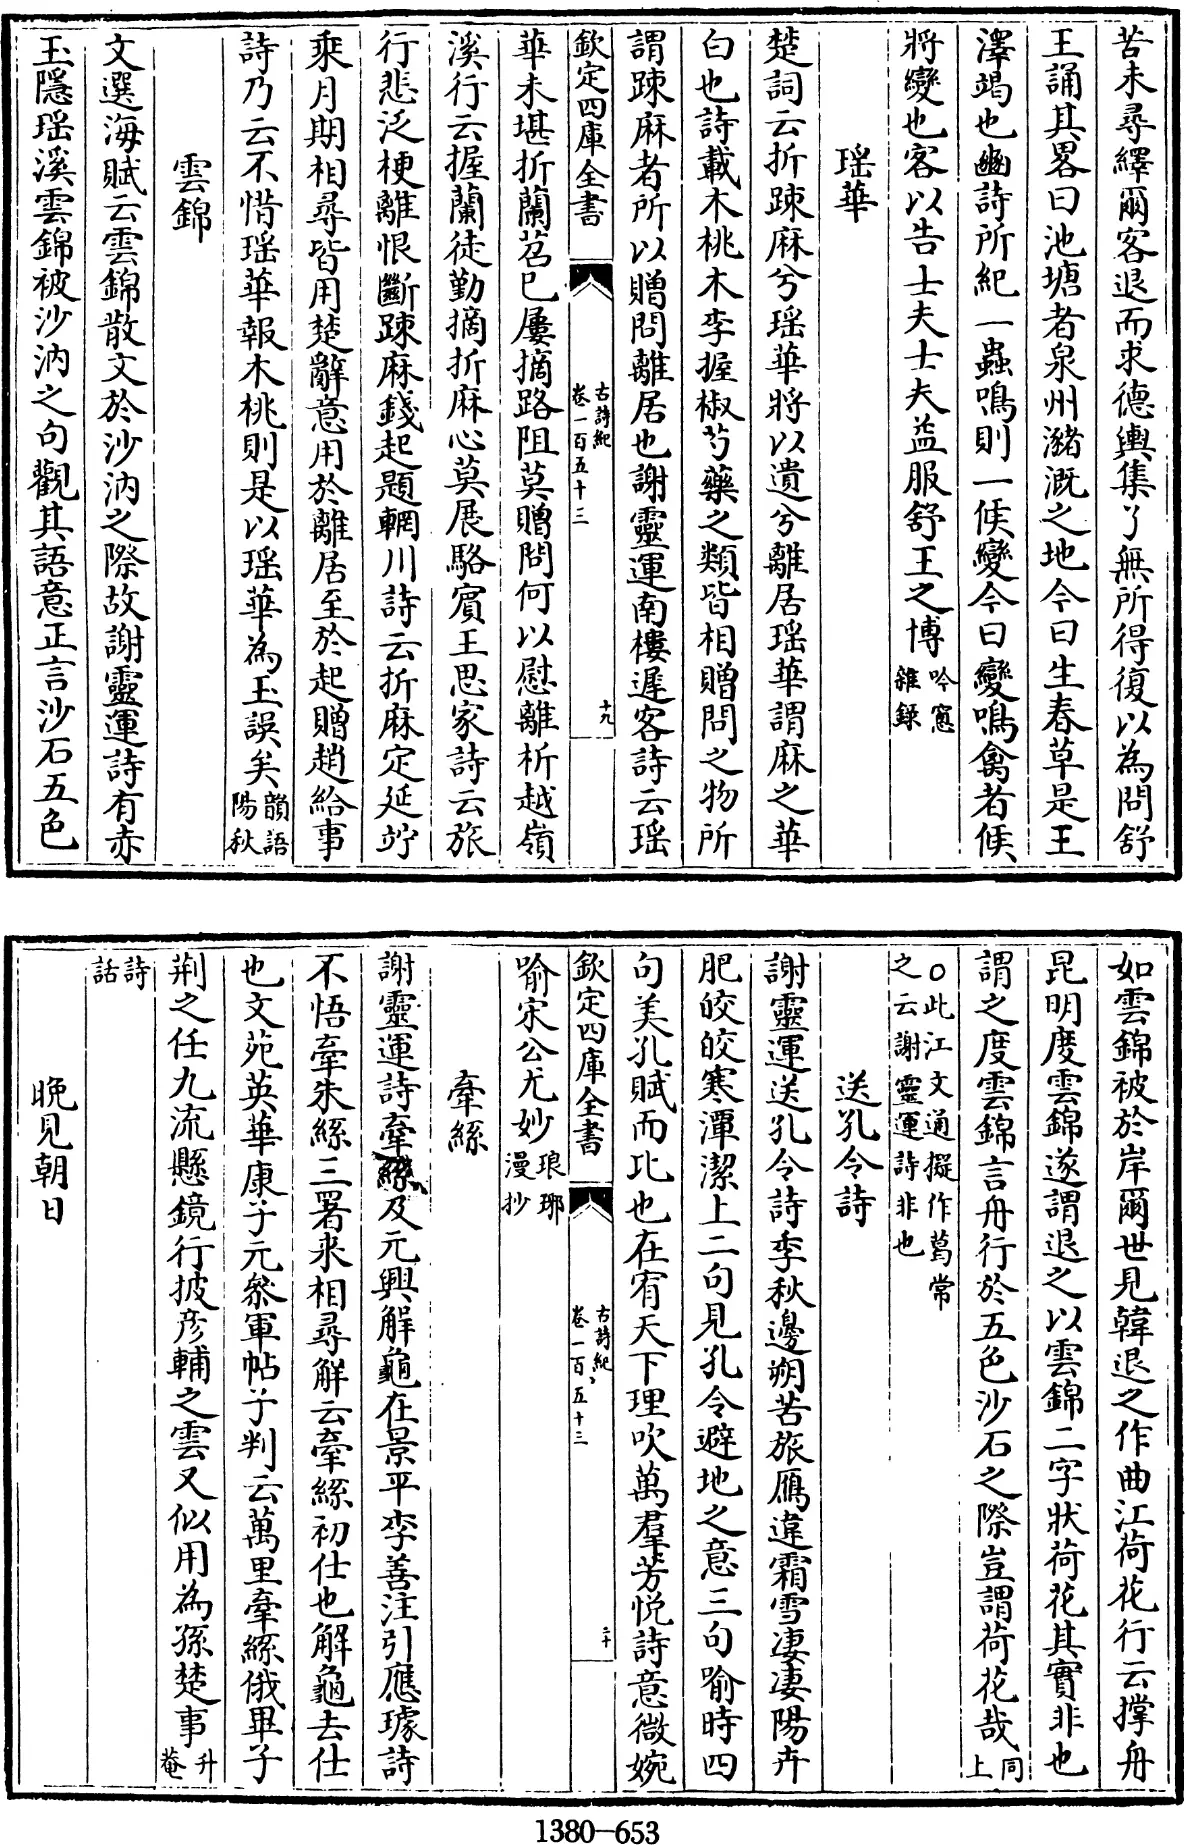 苦未尋繹爾客退而求德輿集了無所得復以為問舒
王誦其畧曰池塘者泉州瀦溉之地今曰生春草是王
澤竭也豳詩所紀一蟲鳴則一候變今曰變鳴禽者候
將變也客以告士夫士夫益服舒王之博吟窻
雜録
瑶華
楚詞云折踈麻兮瑶華將以遺兮離居瑶華謂麻之華
白也詩載木桃木李握椒芍藥之類皆相贈問之物所
謂踈麻者所以贈問離居也謝靈運南樓遲客詩云瑶
欽定四庫全書
古詩紀
卷一百五十三
十九
華未堪折蘭苕已屢摘路阻莫贈問何以慰離析越嶺
溪行云握蘭徒勤摘折麻心莫展駱賓王思家詩云旅
行悲泛梗離恨斷踈麻錢起題輞川詩云折麻定延竚
乘月期相尋皆用楚辭意用於離居至於起贈趙給事
詩乃云不惜瑶華報木桃則是以瑶華為玉誤矣韻語
陽秋
雲錦
文選海賦云雲錦散文於沙汭之際故謝靈運詩有赤
玉隱瑶溪雲錦被沙汭之句觀其語意正言沙石五色
如雲錦被於岸爾世見韓退之作曲江荷花行云撑舟
昆明度雲錦遂謂退之以雲錦二字狀荷花其實非也
謂之度雲錦言舟行於五色沙石之際豈謂荷花哉同
上
○此江文通擬作葛常
之云謝靈運詩非也
送孔令詩
謝靈運送孔令詩季秋邊朔苦旅鴈違霜雪淒淒陽卉
肥皎皎寒潭潔上二句見孔令避地之意三句喻時四
句美孔賦而比也在宥天下理吹萬羣芳悦詩意微婉
欽定四庫全書
古詩紀
卷一百五十三
二十
喻宋公尤妙琅琊
漫抄
牽絲
謝靈運詩牽絲及元興解龜在景平李善注引應璩詩
不悟牽朱絲三署來相尋解云牽絲初仕也解龜去仕
也文苑英華康子元叅軍帖子判云萬里牽絲俄畢子
荆之任九流懸鏡行披彦輔之雲又似用為孫楚事升
菴
詩
話
晚見朝日
1380-653